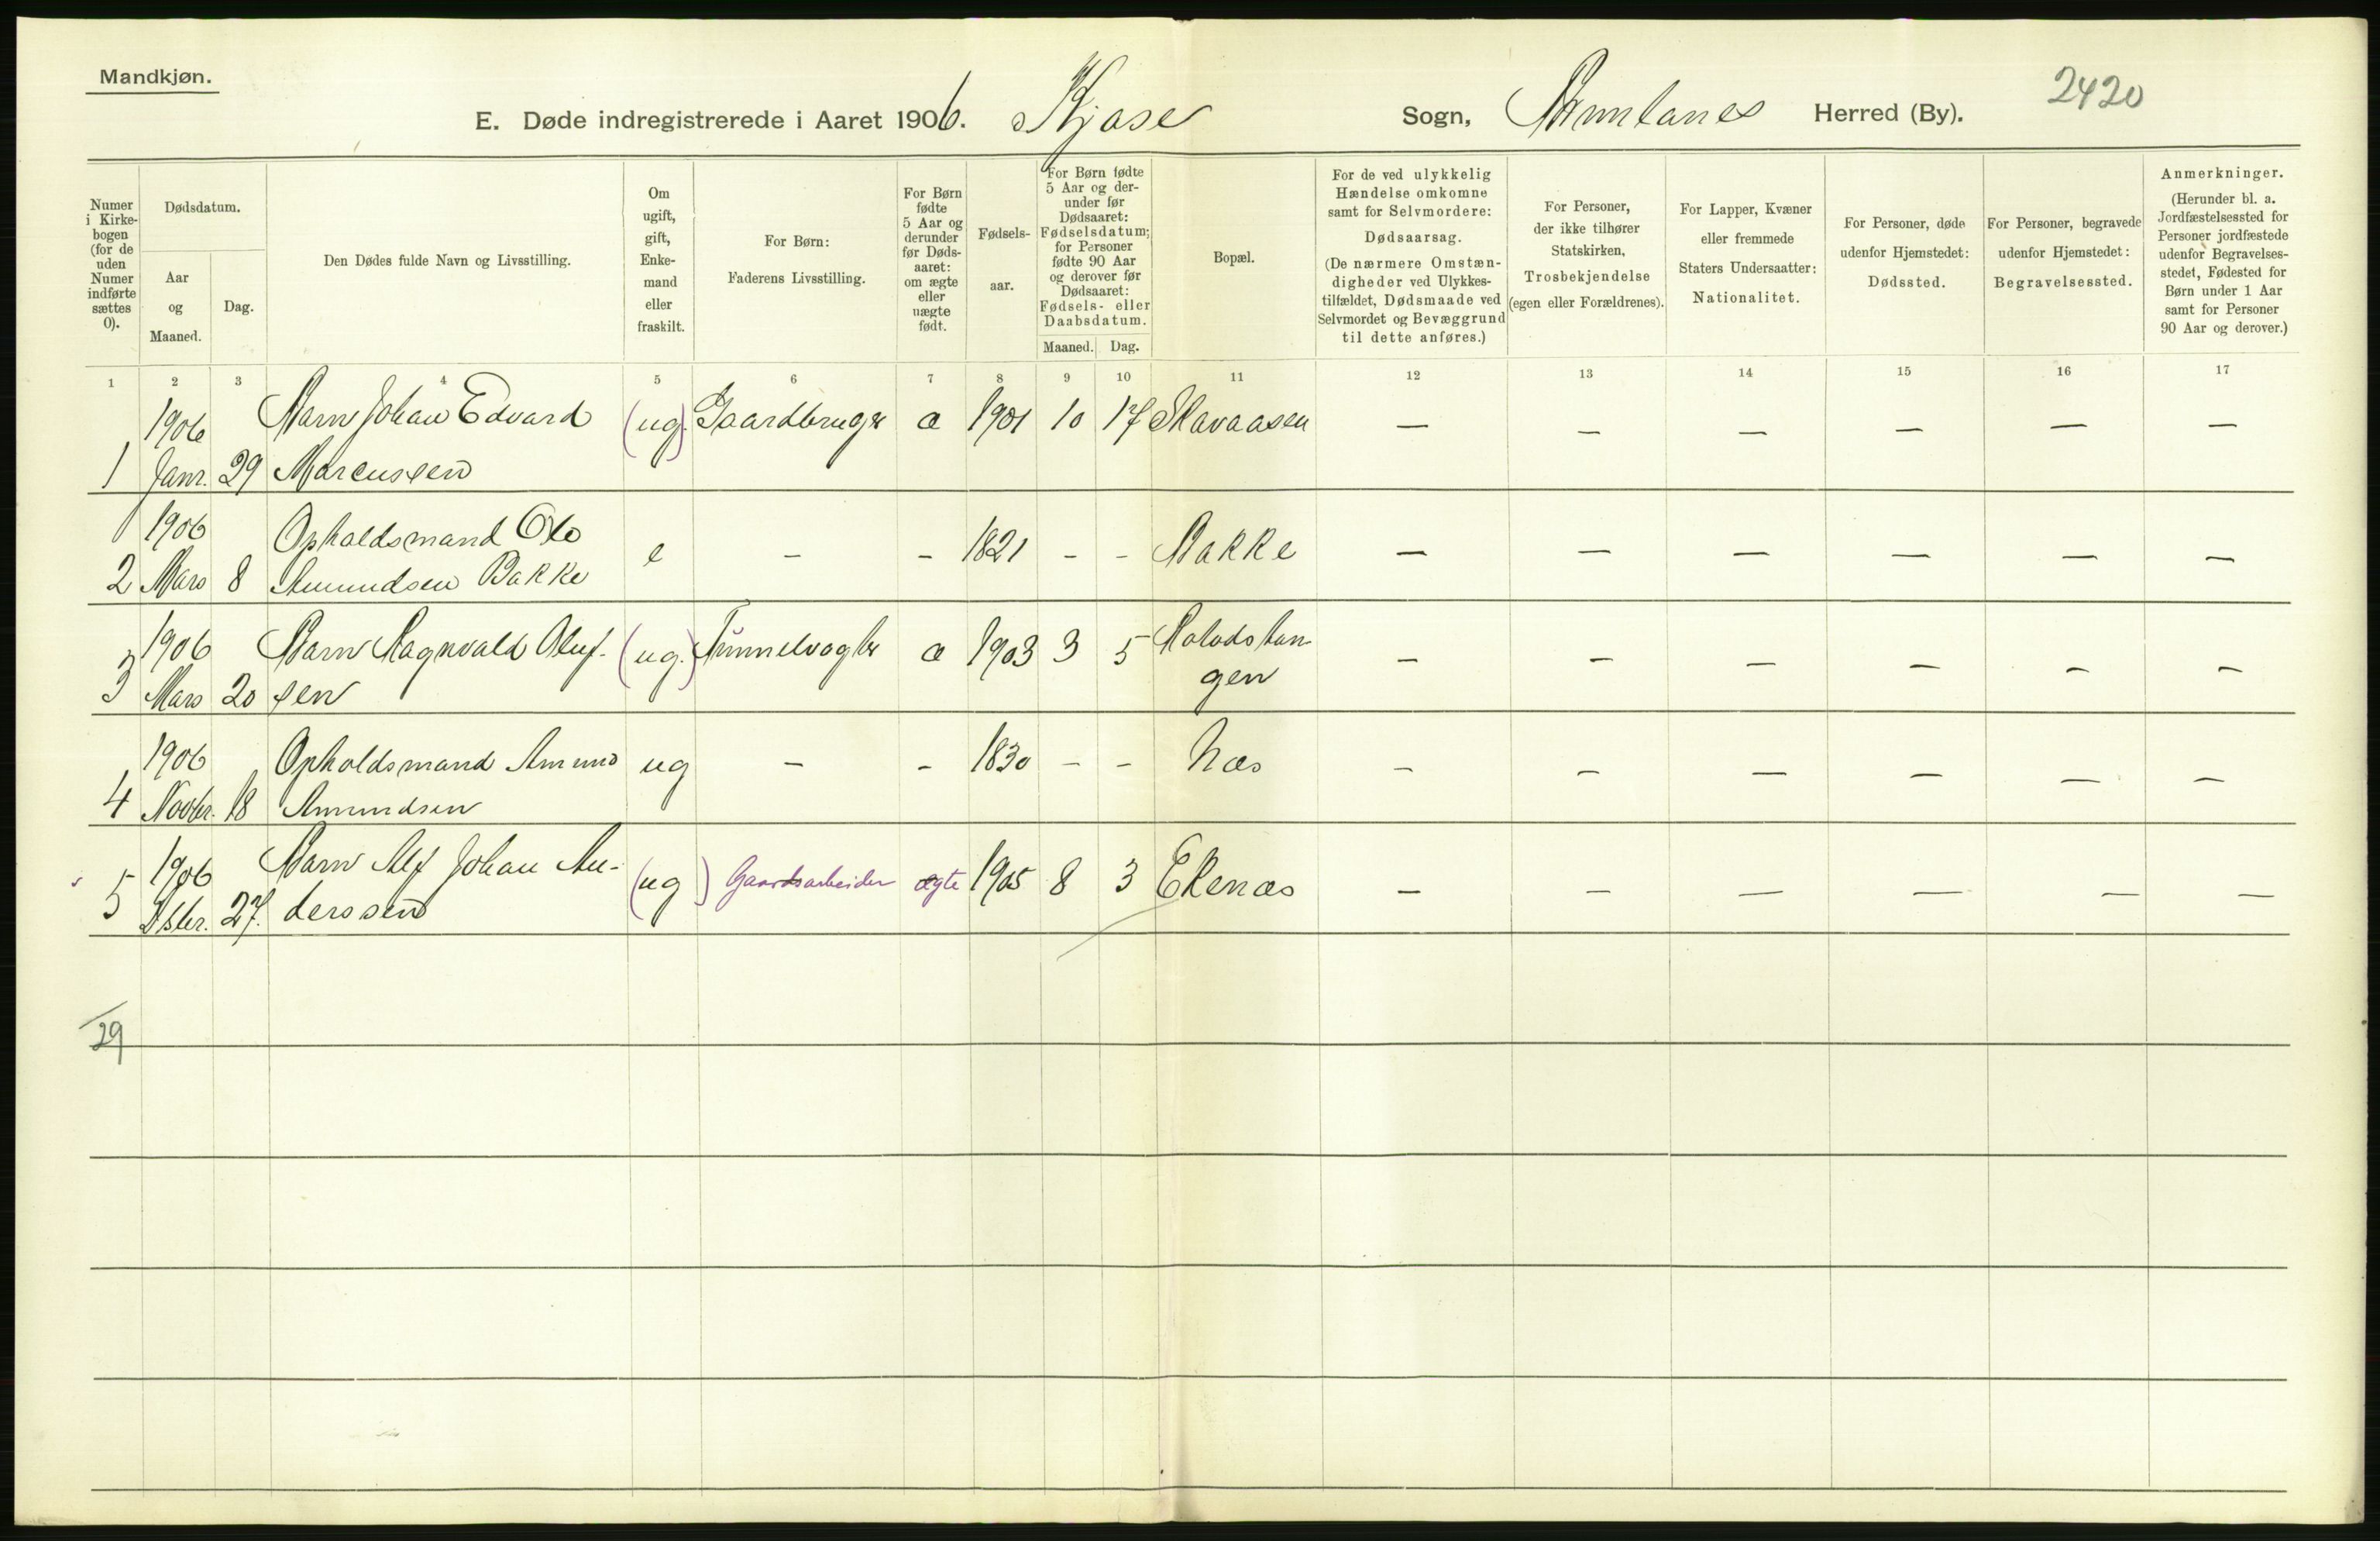 Mandkjøn.
E. Døde indregistrerede i Aaret 1906. Kjose Sogn, Brunlanes Herred (By). 2420
Numer i Kirke-bogen (for de uden Numer indførte sættes 0).
Dødsdatum.
Aar og Maaned.
Dag.
Den Dødes fulde Navn og Livsstilling.
Om ugift, gift, Enke-mand eller fraskilt.
For Børn:
Faderens Livsstilling.
For Børn fødte 5 Aar og derunder før Døds-aaret: om ægte eller uægte født.
Fødsels-aar.
For Børn fødte 5 Aar og der-under før Dødsaaret: Fødselsdatum; for Personer fødte 90 Aar og derover før Dødsaaret: Fødsels- eller Daabsdatum.
Maaned. Dag.
Bopæl.
For de ved ulykkelig Hændelse omkomne samt for Selvmordere: Dødsaarsag.
(De nærmere Omstæn-digheder ved Ulykkes-tilfældet, Dødsmaade ved Selvmordet og Bevæggrund til dette anføres.)
For Personer, der ikke tilhører Statskirken, Trosbekjendelse (egen eller Forældrenes).
For Lapper, Kvæner eller fremmede Staters Undersaatter: Nationalitet.
For Personer, døde udenfor Hjemstedet: Dødssted.
For Personer, begravede udenfor Hjemstedet: Begravelsessted.
Anmerkninger.
(Herunder bl. a. Jordfæstelsessted for Personer jordfæstede udenfor Begravelses-stedet, Fødested for Børn under 1 Aar samt for Personer 90 Aar og derover.)
1 2 3 4 5 6 7 8 9 10 11 12 13 14 15 16 17
1906 Barn Johan Edvard (ug.) Gaardbruger æ 1901 10 17 Skavaasen — — — — — —
1 Janr. 29 Marcussen
1906 Opholdsmand Ole e - - 1821 - - Bakke — — — — — —
2 Mars 8 Amundsen Bakke
1906 Barn Ragnvald Oluf- (ug.) Tunnelvogter æ 1903 3 5 — — — — — —
3 Mars 20 sen gen
1906 Opholdsmand Amund ug - - 1830 - - Næs — — — — — —
4 Novbr. 18 Amundsen
1906 Barn Alf Johan An- (ug) Gaardsarbeider ægte 1905 8 3 Ekenæs — — — — — —
5 Dsbr. 27. derssen
29